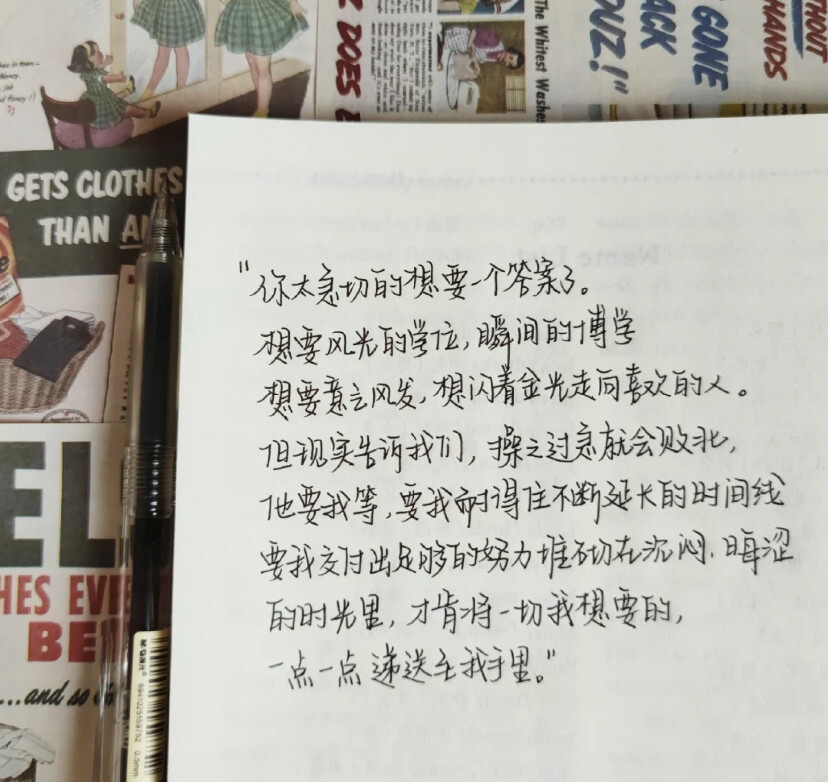 WITHOUT
HANDS
GONE
ACK
DUZ!"
The Whitest Washes
DOES
GETS CLOTHES
THAN
"你太急切的想要一个答案了。
想要风光的学位，瞬间的博学
想要意气风发，想闪着金光走向喜欢的人。
但现实告诉我们，操之过急就会败北，
他要我等，要我耐得住不断延长的时间线
要我交付出足够的努力堆砌在沉闷、晦涩
的时光里，才肯将一切我想要的，
一点一点递送至我手里。"
EL
HES EVE
BE
...and so